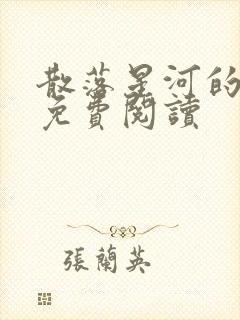 散落星河的
免費閱讀
張蘭英